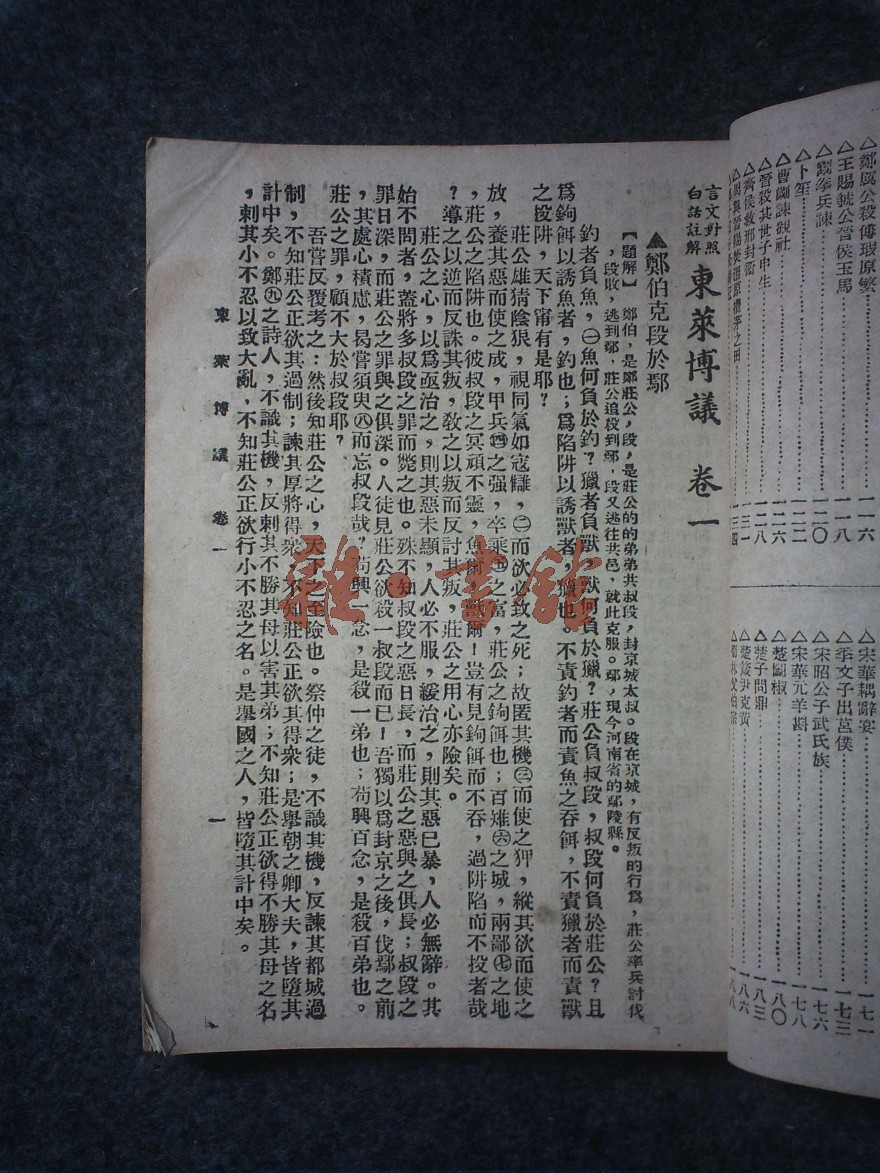 △鄭厲公殺傅瑕原繁……一一六
△王賜虢公晉侯玉馬……一一八
△鬻拳兵諫……一二〇
△卜筮……一二二
△曹劌諫觀社……一二六
△晉殺其世子申生……一二八
△齊侯救邢封衞……一三一
△宋華耦辭宴……一七一
△季文子出莒僕……一七三
△宋昭公子武氏族……一七六
△宋華元羊斟……一七八
△楚鬭椒……一八〇
△楚子問鼎……一八三
△楚箴尹克黃……一八六
言文對照
白話註解
東萊博議 卷一
▲鄭伯克段於鄢
【題解】 鄭伯，是鄭莊公，段，是莊公的的弟弟共叔段，封京城太叔。段在京城，有反叛的行爲，莊公率兵討伐
，段敗，逃到鄢，莊公追段到鄢，段又逃往共邑，就此克服。鄢，現今河南省的鄢陵縣。
釣者負魚，㊀魚何負於釣？獵者負獸，獸何負於獵？莊公負叔段，叔段何負於莊公？且
爲鉤餌以誘魚者，釣也；爲陷阱以誘獸者，獵也。不責釣者而責魚之吞餌，不責獵者而責獸
之投阱，天下甯有是耶？
莊公雄猜陰狠，視同氣如寇讎，㊁而欲必致之死；故匿其機㊂而使之狎，縱其欲而使之
放，養其惡而使之成，甲兵㊃之强，卒乘㊄之富，莊公之鉤餌也；百雉㊅之城，兩鄙㊆之地
，莊公之陷阱也。彼叔段之冥頑不靈，魚爾！獸爾！豈有見鉤餌而不吞，過阱陷而不投者哉
？導之以逆而反誅其叛，敎之以叛而反討其叛，莊公之用心亦險矣。
莊公之心，以爲亟治之，則其惡未顯，人必不服，緩治之，則其惡已暴，人必無辭。其
始不問者，蓋將多叔段之罪而斃之也。殊不知叔段之惡日長，而莊公之惡與之俱長；叔段之
罪日深，而莊公之罪與之俱深。人徒見莊公欲殺一叔段而已！吾獨以爲封京之後，伐鄢之前
，其處心積慮，曷嘗須臾㊇而忘叔段哉？苟興一念，是殺一弟也；苟興百念，是殺百弟也。
莊公之罪，顧不大於叔段耶？
吾嘗反覆考之：然後知莊公之心，天下之至險也。祭仲之徒，不識其機，反諫其都城過
制，不知莊公正欲其過制；諫其厚將得衆，不知莊公正欲其得衆；是舉朝之卿大夫，皆墮其
計中矣。鄭㊈之詩人，不識其機，反刺其不勝其母以害其弟；不知莊公正欲得不勝其母之名
，刺其小不忍以致大亂，不知莊公正欲行小不忍之名。是舉國之人，皆墮其計中矣。
東萊博議 卷一
一